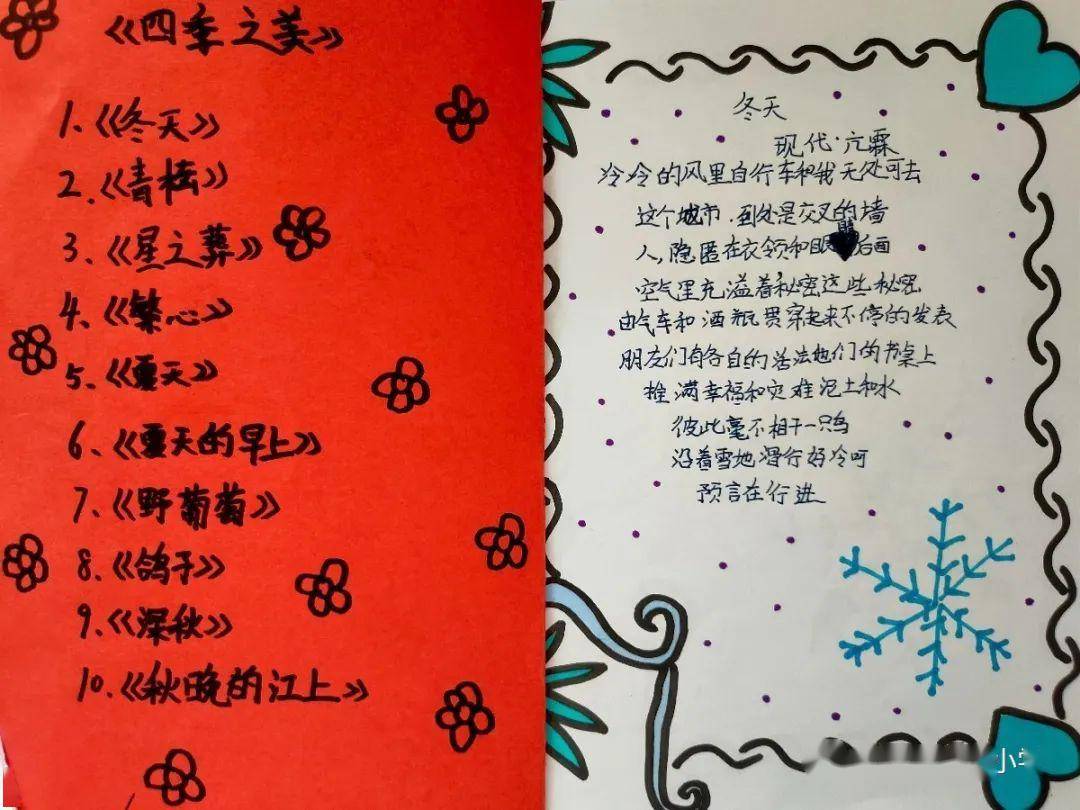 《四季之美》
1.《冬天》
2.《青桔》
3.《星之葬》
4.《繁心》
5.《夏天》
6.《夏天的早上》
7.《野葡萄》
8.《鸽子》
9.《深秋》
10.《秋晚的江上》
冬天
现代·亢霖
冷冷的风里自行车和我无处可去
这个城市.到处是交叉的墙
人,隐匿在衣领和眼后面
空气里充溢着秘密这些秘密
由气车和酒瓶贯穿起来不停的发表
朋友们有各自的活法他们的书桌上
挫满幸福和灾难泥土和水
彼此毫不相干一只鸟
沿着雪地滑行好冷呵
预言在行进
小